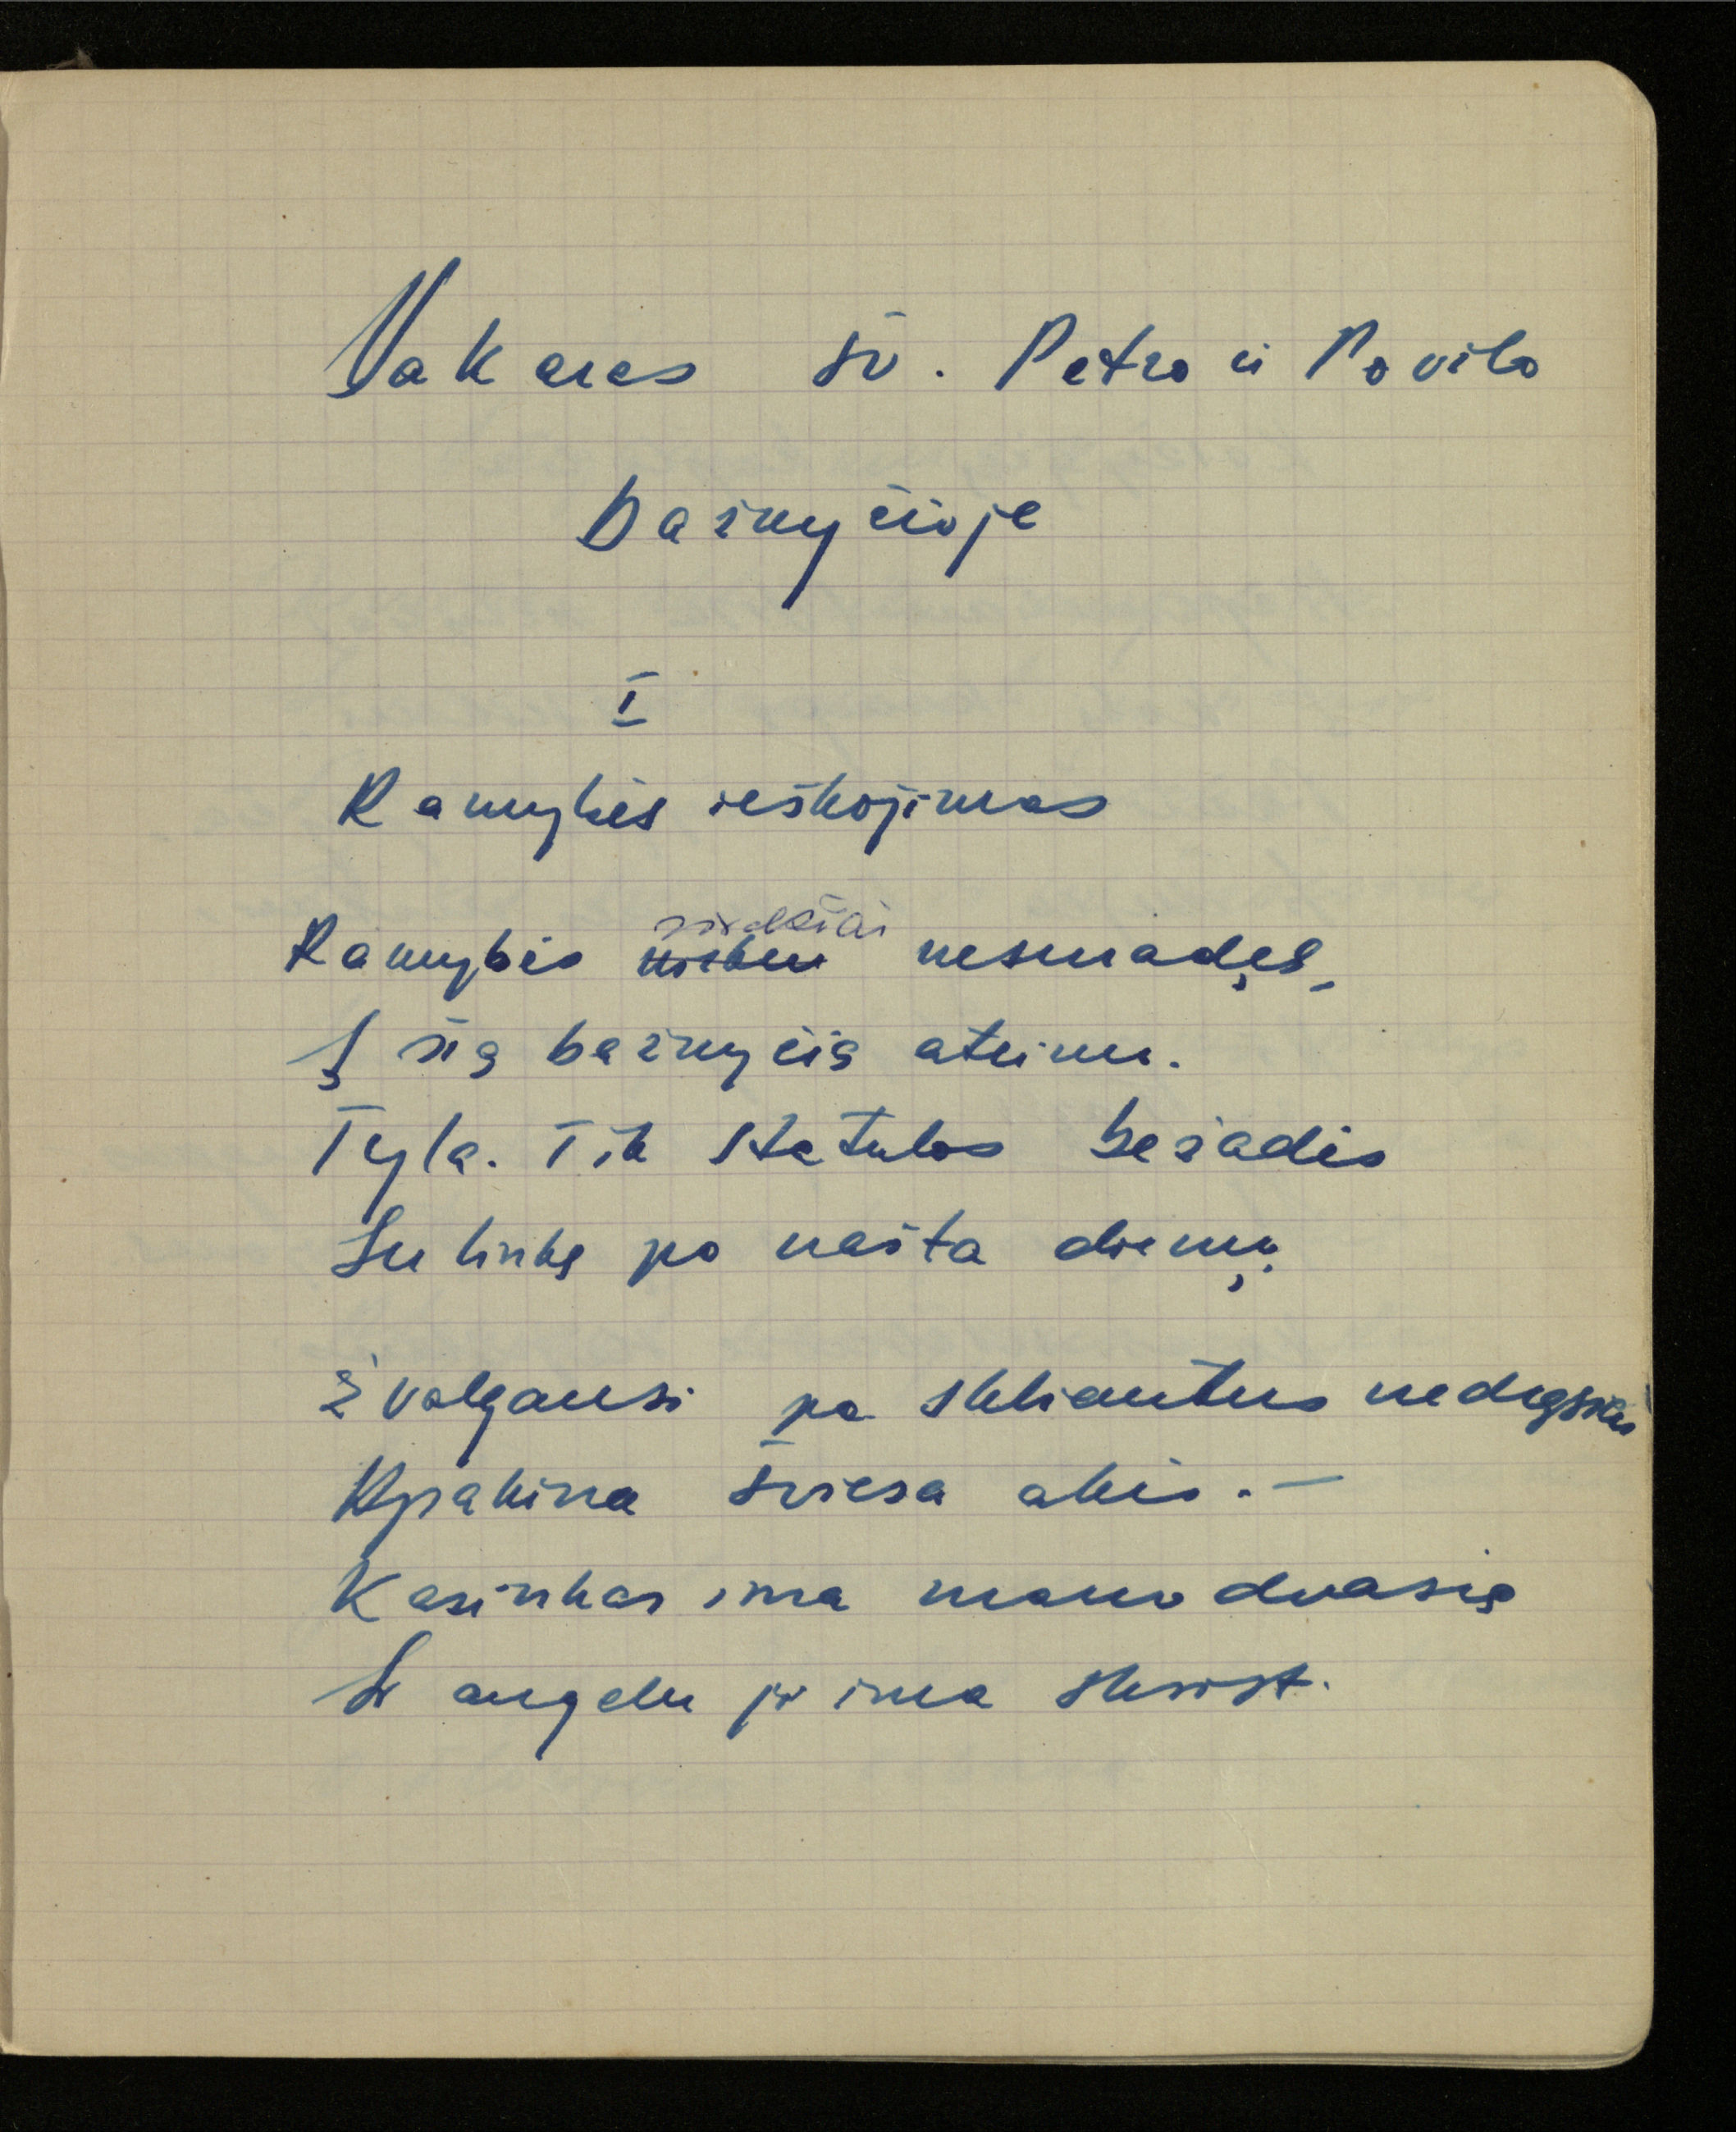 Vakaras šv. Petro ir Povilo
bažnyčioje
I
Ramybės ieškojimas
Ramybės širdžiai nesuradęs,
Į šią bažnyčią ateinu.
Tyla. Tik statulos bežadės
Sulinkę po našta dienų.
Žvalgausi po skliautus nedrąsiai
Apakina šviesa akis. –
Kažinkas ima mano dvasią
Su angelu ji ima skrist.